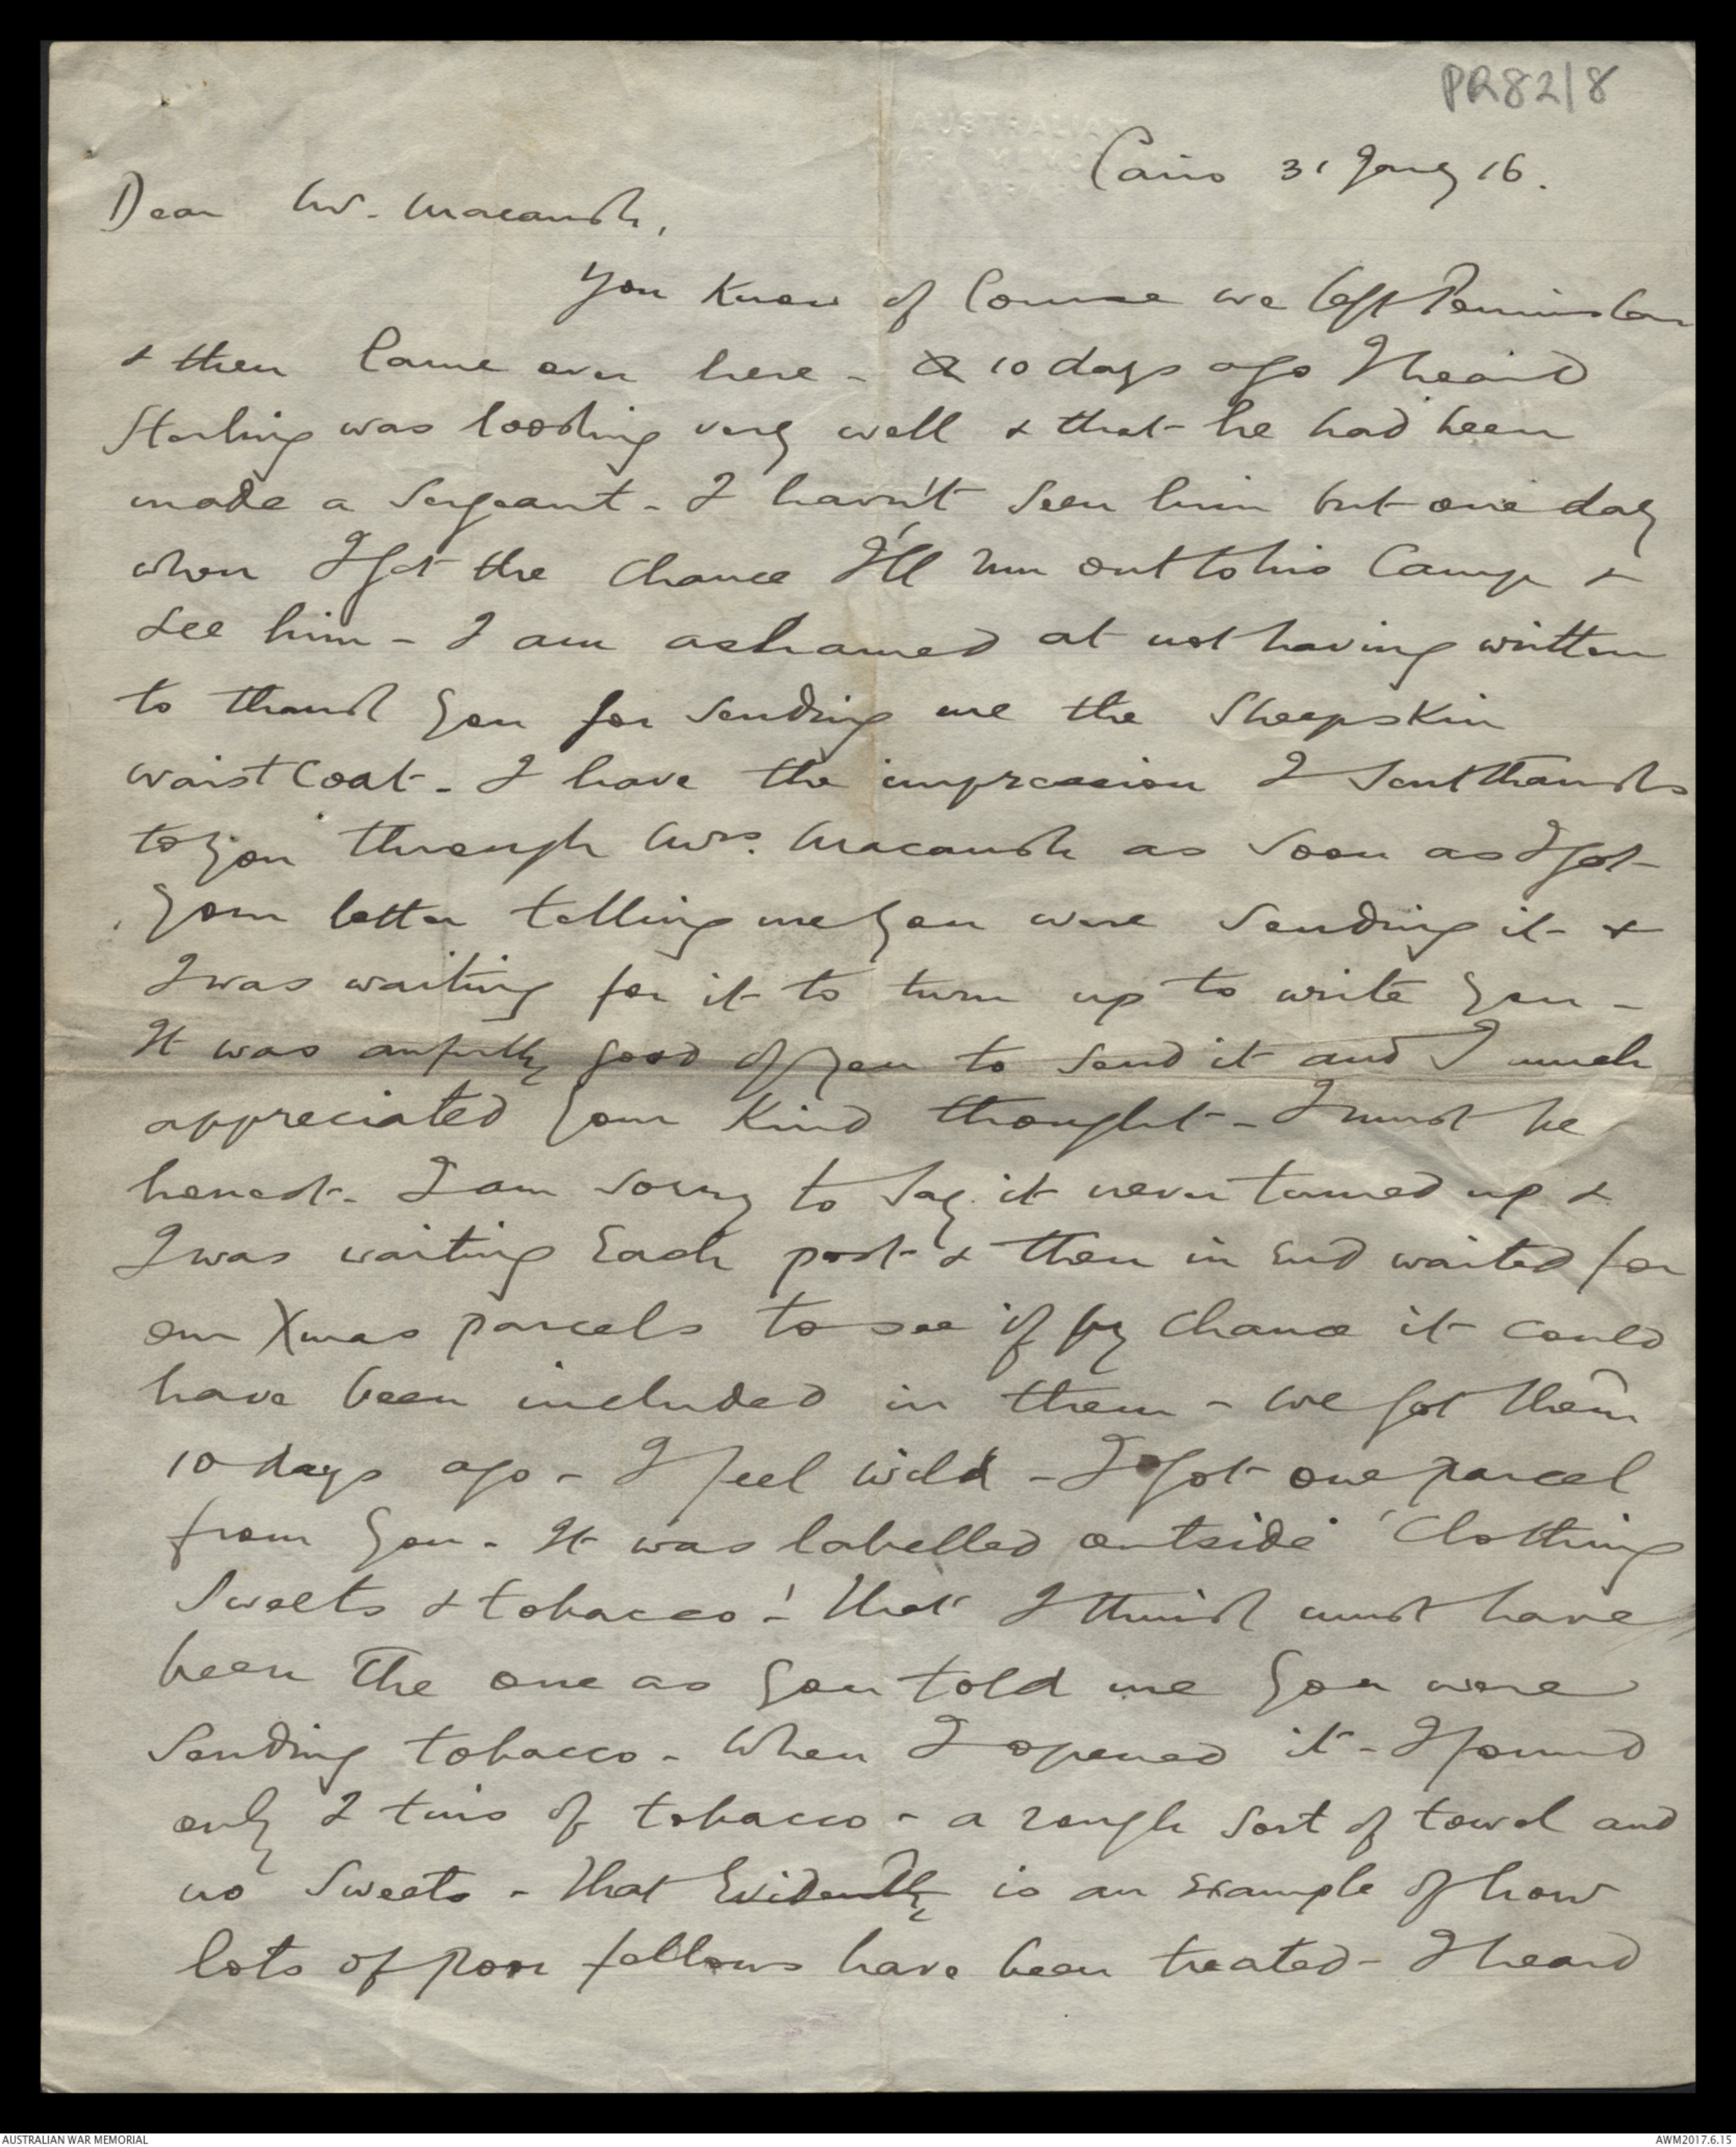 PR82/8
Cairo 31 Jany 16.
Dear Mr. Macansh,
You know of course we left Peninsular
& then came over here - 10 days ago I heard
Sterling was looking very well & that he had been
made a Sergeant - I havn't seen him but one day
when I get the chance I'll run out to his Camp &
see him - I am ashamed at not having written
to thank you for sending me the Sheepskin
waistcoat - I have the impression I sent thanks
to you through Mrs. Macansh as soon as I got
your letter telling me you were sending it &
I was waiting for it to turn up to write you -
It was awfully good of you to send it and I much
appreciated your kind thought - I must be
honest - I am sorry to say it never turned up &
I was waiting Each post & then in End waited for
our Xmas parcels to see if by chance it could
have been included in them - we got them
10 days ago - I feel wild - I got one parcel
from you - It was labelled outside 'Clothing
Sweets & tobacco'! That I think must have
been the one as you told me you were
sending tobacco - When I opened it - I found
only 2 tins of tobacco - a rough sort of towel and
no Sweets - That Evidently is an Example of how
lots of poor fellows have been treated - I heard
AUSTRALIAN WAR MEMORIAL
AWM2017.6.15